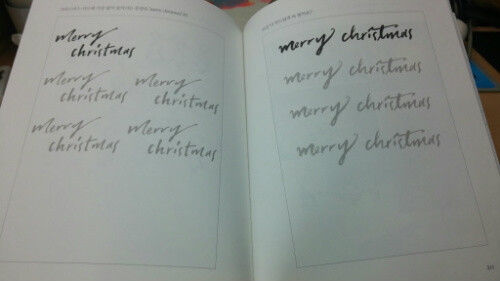 merry
christmas
merry
christmas
merry
christmas
merry
christmas
merry
christmas
merry christmas
merry christmas
merry christmas
merry christmas